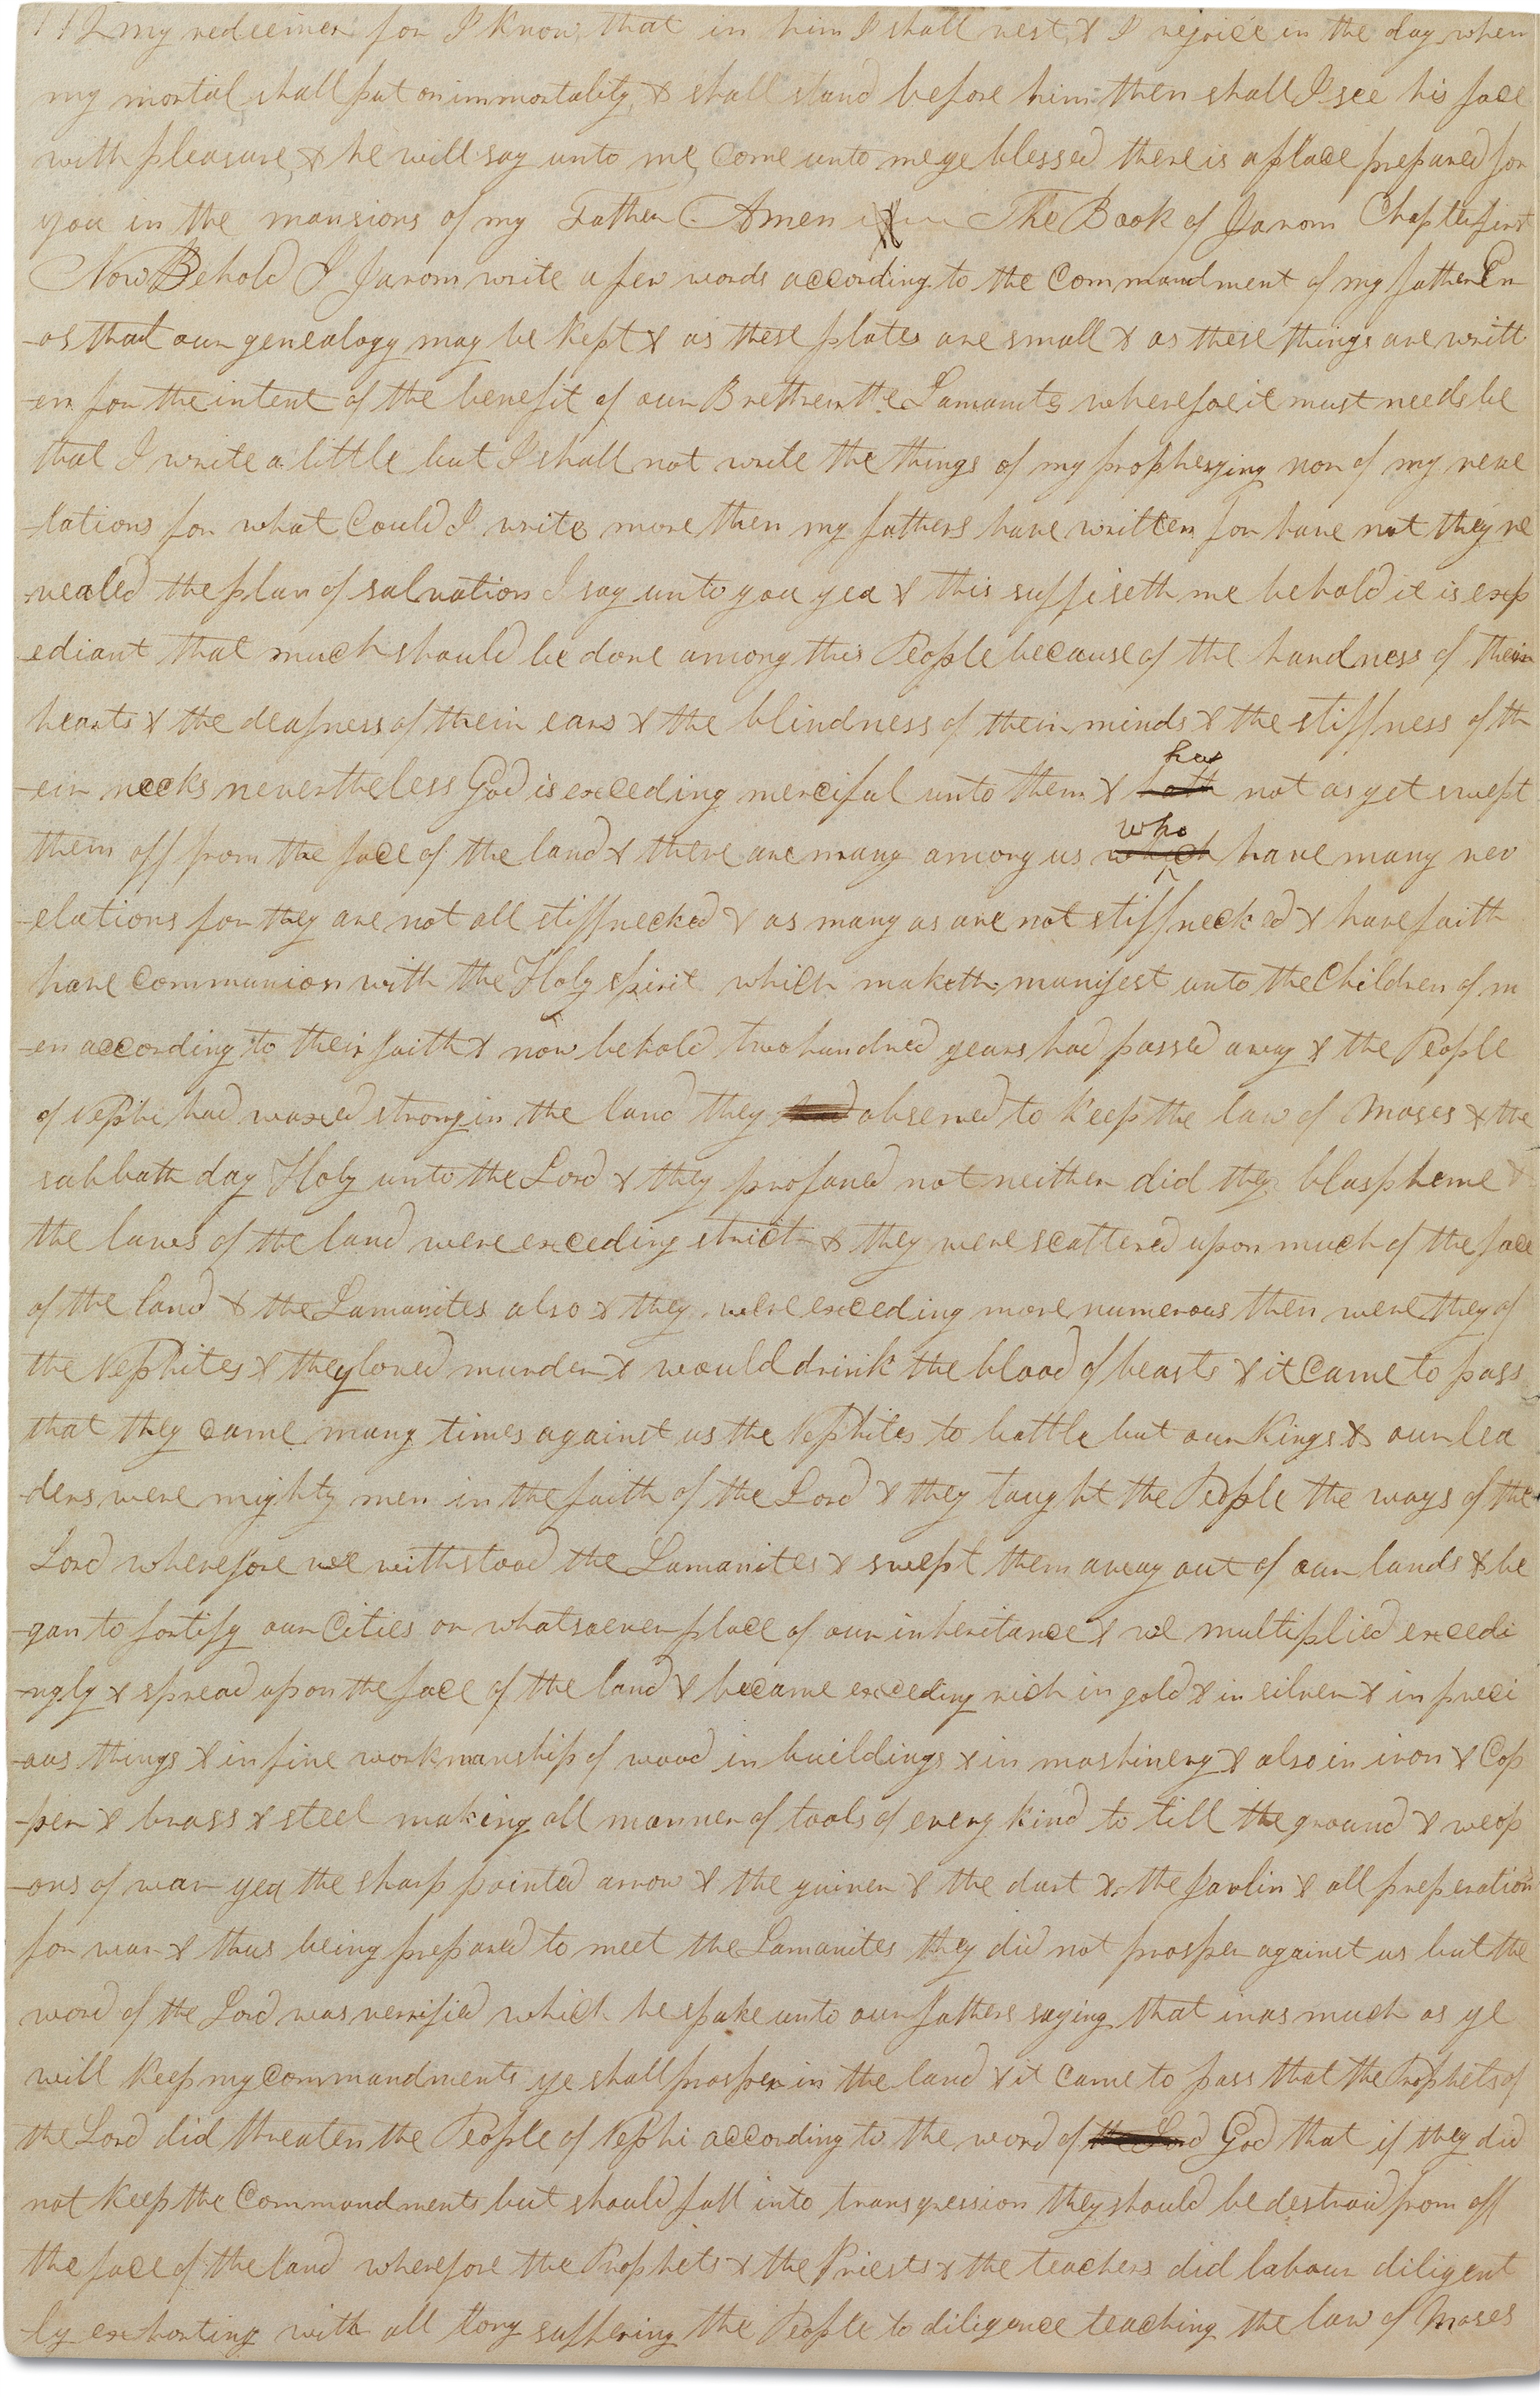 112 my redeemer for I know that in him I shall rest & I rejoice in the day when
my mortal shall put on immortality & shall stand before him then shall I see his face
with pleasure & he will say unto me come unto me ye blessed there is a place prepared for
you in the mansions of my Father Amen The Book of Jarom Chapter first
Now Behold I Jarom write a few words according to the commandment of my father En
-os that our genealogy may be kept & as these plates are small & as these things are writt
-en for the intent of the benefit of our Brethren the Lamanites wherefore it must needs be
that I write a little but I shall not write the things of my prophesying nor of my reve
-lations for what could I write more then my fathers have written for have not they re
-vealed the plan of salvation I say unto you yea & this suffiseth me behold it is exp
-ediant that much should be done among this People because of the hardness of their
hearts & the deafness of their ears & the blindness of their minds & the stiffness of th
has
-eir necks nevertheless God is exceding merciful unto them & hath not as yet swept
who
them off from the face of the land & there are many among us which have many rev
-elations for they are not all stiffnecked & as many as are not stiffnecked & have faith
have communion with the Holy spirit which maketh manifest unto the children of m
-en according to their faith & now behold two hundred years had passed away & the People
of Nephi had waxed strong in the land they had observed to keep the law of Moses & the
sabbath day Holy unto the Lord & they profaned not neither did they blaspheme &
the laws of the land were exceding strict & they were scattered upon much of the face
of the land & the Lamanites also & they were exceding more numerous then were they of
the Nephites & they loved murder & would drink the blood of beasts & it came to pass
that they came many times against us the Nephites to battle but our Kings & our lea
-ders were mighty men in the faith of the Lord & they taught the People the ways of the
Lord wherefore we withstood the Lamanites & swept them away out of our lands & be
-gan to fortify our cities or whatsoever place of our inheritance & we multiplied excedi
-ngly & spread upon the face of the land & became exceding rich in gold & in silver & in preci
-ous things & in fine workmanship of wood in buildings & in mashinery & also in iron & cop
-per & brass & steel making all manner of tools of every kind to till the ground & weop
-ons of war yea the sharp pointed arrow & the quiver & the dart & the javlin & all preperation
for war & thus being prepared to meet the Lamanites they did not prosper against us but the
word of the Lord was verrified which he spake unto our fathers saying that inas much as ye
will keep my commandments ye shall prosper in the land & it came to pass that the Prophets of
the Lord did threaten the People of Nephi according to the word of the Lord God that if they did
not keep the commandments but should fall into transgression they should be destroid from off
the face of the land wherefore the Prophets & the Priests & the teachers did labour diligent
-ly exhorting with all long suffering the People to diligence teaching the law of Moses